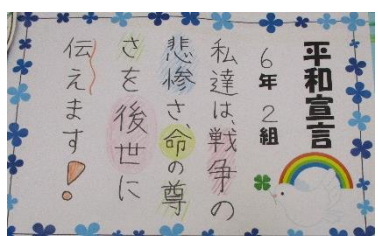 平和宣言
6年2組
私達は、戦争の
悲惨さ、命の尊
さを後世に
伝えます!